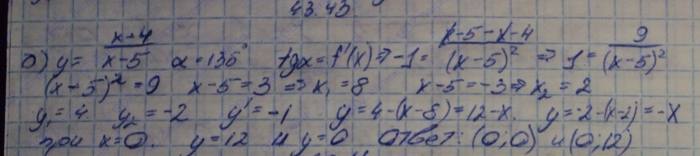 43.43
б) y = x+4/x-5 α=135° tgα=f'(x) ⇒ -1= x-5-x-4/(x-5)² ⇒ 1= 9/(x-5)²
(x-5)²=9 x-5=3 ⇒ x₁=8 x-5=-3 ⇒ x₂=2
y₁=4 y₂=-2 y'=-1 y=4-(x-8)=12-x. y=-2-(x-2)=-x
при x=0. y=12 и y=0 Ответ: (0;0) и (0;12)